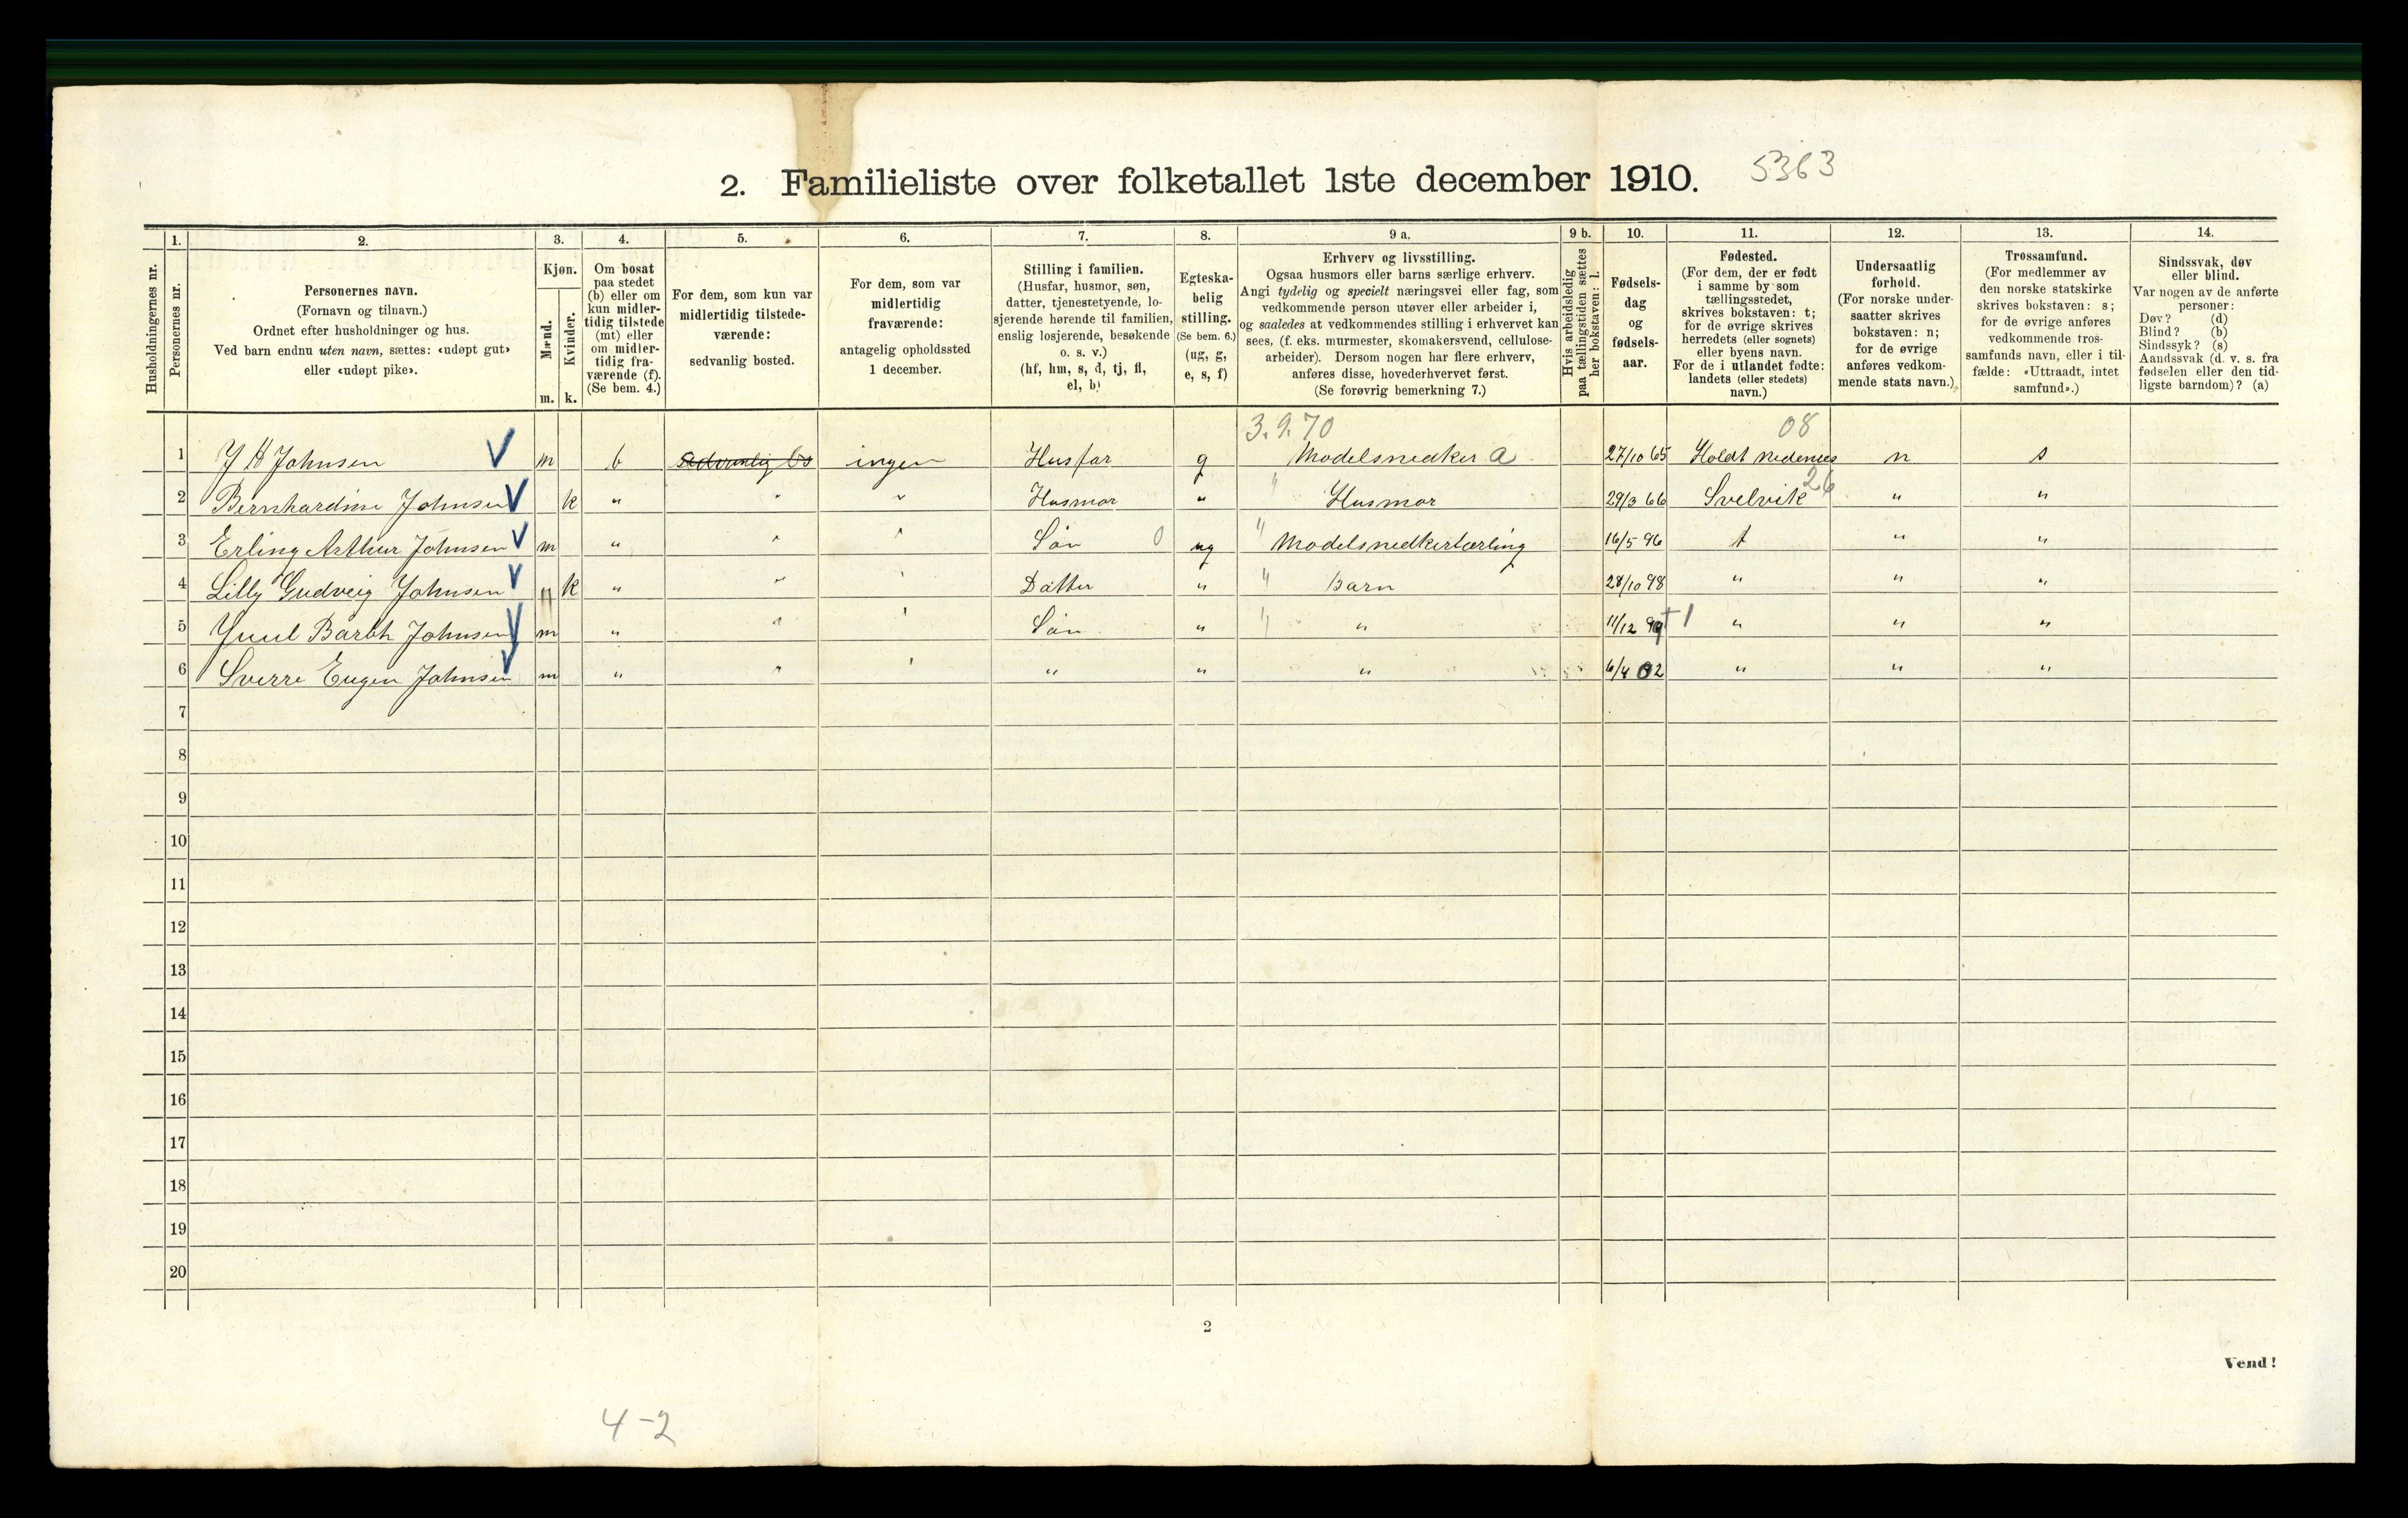 2. Familieliste over folketallet 1ste december 1910. 5363
Husholdningernes nr.
1. Personernes nr.
2. Personernes navn.
(Fornavn og tilnavn.)
Ordnet efter husholdninger og hus.
Ved barn endnu uten navn, sættes: «udøpt gut»
eller «udøpt pike».
3. Kjøn.
Mænd. m.
Kvinder. k.
4. Om bosat
paa stedet
(b) eller om
kun midler-
tidig tilstede
(mt) eller
om midler-
tidig fra-
værende (f).
(Se bem. 4.)
5. For dem, som kun var
midlertidig tilstede-
værende:
sedvanlig bosted.
6. For dem, som var
midlertidig
fraværende:
antagelig opholdssted
1 december.
7. Stilling i familien.
(Husfar, husmor, søn,
datter, tjenestetyende, lo-
sjerende hørende til familien,
enslig losjerende, besøkende
o. s. v.)
(hf, hm, s, d, tj, fl,
el, b)
8. Egteska-
belig
stilling.
(Se bem. 6.)
(ug, g,
e, s, f)
9 a. Erhverv og livsstilling.
Ogsaa husmors eller barns særlige erhverv.
Angi tydelig og specielt næringsvei eller fag, som
vedkommende person utøver eller arbeider i,
og saaledes at vedkommendes stilling i erhvervet kan
sees, (f. eks. murmester, skomakersvend, cellulose-
arbeider). Dersom nogen har flere erhverv,
anføres disse, hovederhvervet først.
(Se forøvrig bemerkning 7.)
9 b. Hvis arbeidsledig
paa tællingstiden sættes
her bokstaven: l.
10. Fødsels-
dag
og
fødsels-
aar.
11. Fødested.
(For dem, der er født
i samme by som
tællingsstedet,
skrives bokstaven: t;
for de øvrige skrives
herredets (eller sognets)
eller byens navn.
For de i utlandet fødte:
landets (eller stedets)
navn.)
12. Undersaatlig
forhold.
(For norske under-
saatter skrives
bokstaven: n;
for de øvrige
anføres vedkom-
mende stats navn.)
13. Trossamfund.
(For medlemmer av
den norske statskirke
skrives bokstaven: s;
for de øvrige anføres
vedkommende tros-
samfunds navn, eller i til-
fælde: «Uttraadt, intet
samfund».)
14. Sindssvak, døv
eller blind.
Var nogen av de anførte
personer:
Døv? (d)
Blind? (b)
Sindssyk? (s)
Aandssvak (d. v. s. fra
fødselen eller den tid-
ligste barndom)? (a)
3.9.70 08
1 J B Johnsen m b sedvanlig bo ingen Husfar g Modelsnedker a 27/10 65 Holdt Nedenes n s
2 Bernhardine Johnsen k " " " Husmor " " Husmor 29/3 66 Svelvik 26 " "
3 Erling Arthur Johnsen m " " " Søn 0 ug " Modelsnedkerlærling 16/5 96 t " "
4 Lilly Gudveig Johnsen k " " " Datter " " Barn 28/10 98 " " "
5 Juul Barth Johnsen m " " " Søn " " " 11/12 99 +1 " " "
6 Sverre Eugen Johnsen m " " " " " " 6/4 02 " " "
7
8
9
10
11
12
13
14
15
16
17
18
19
20
2
Vend!
4-2